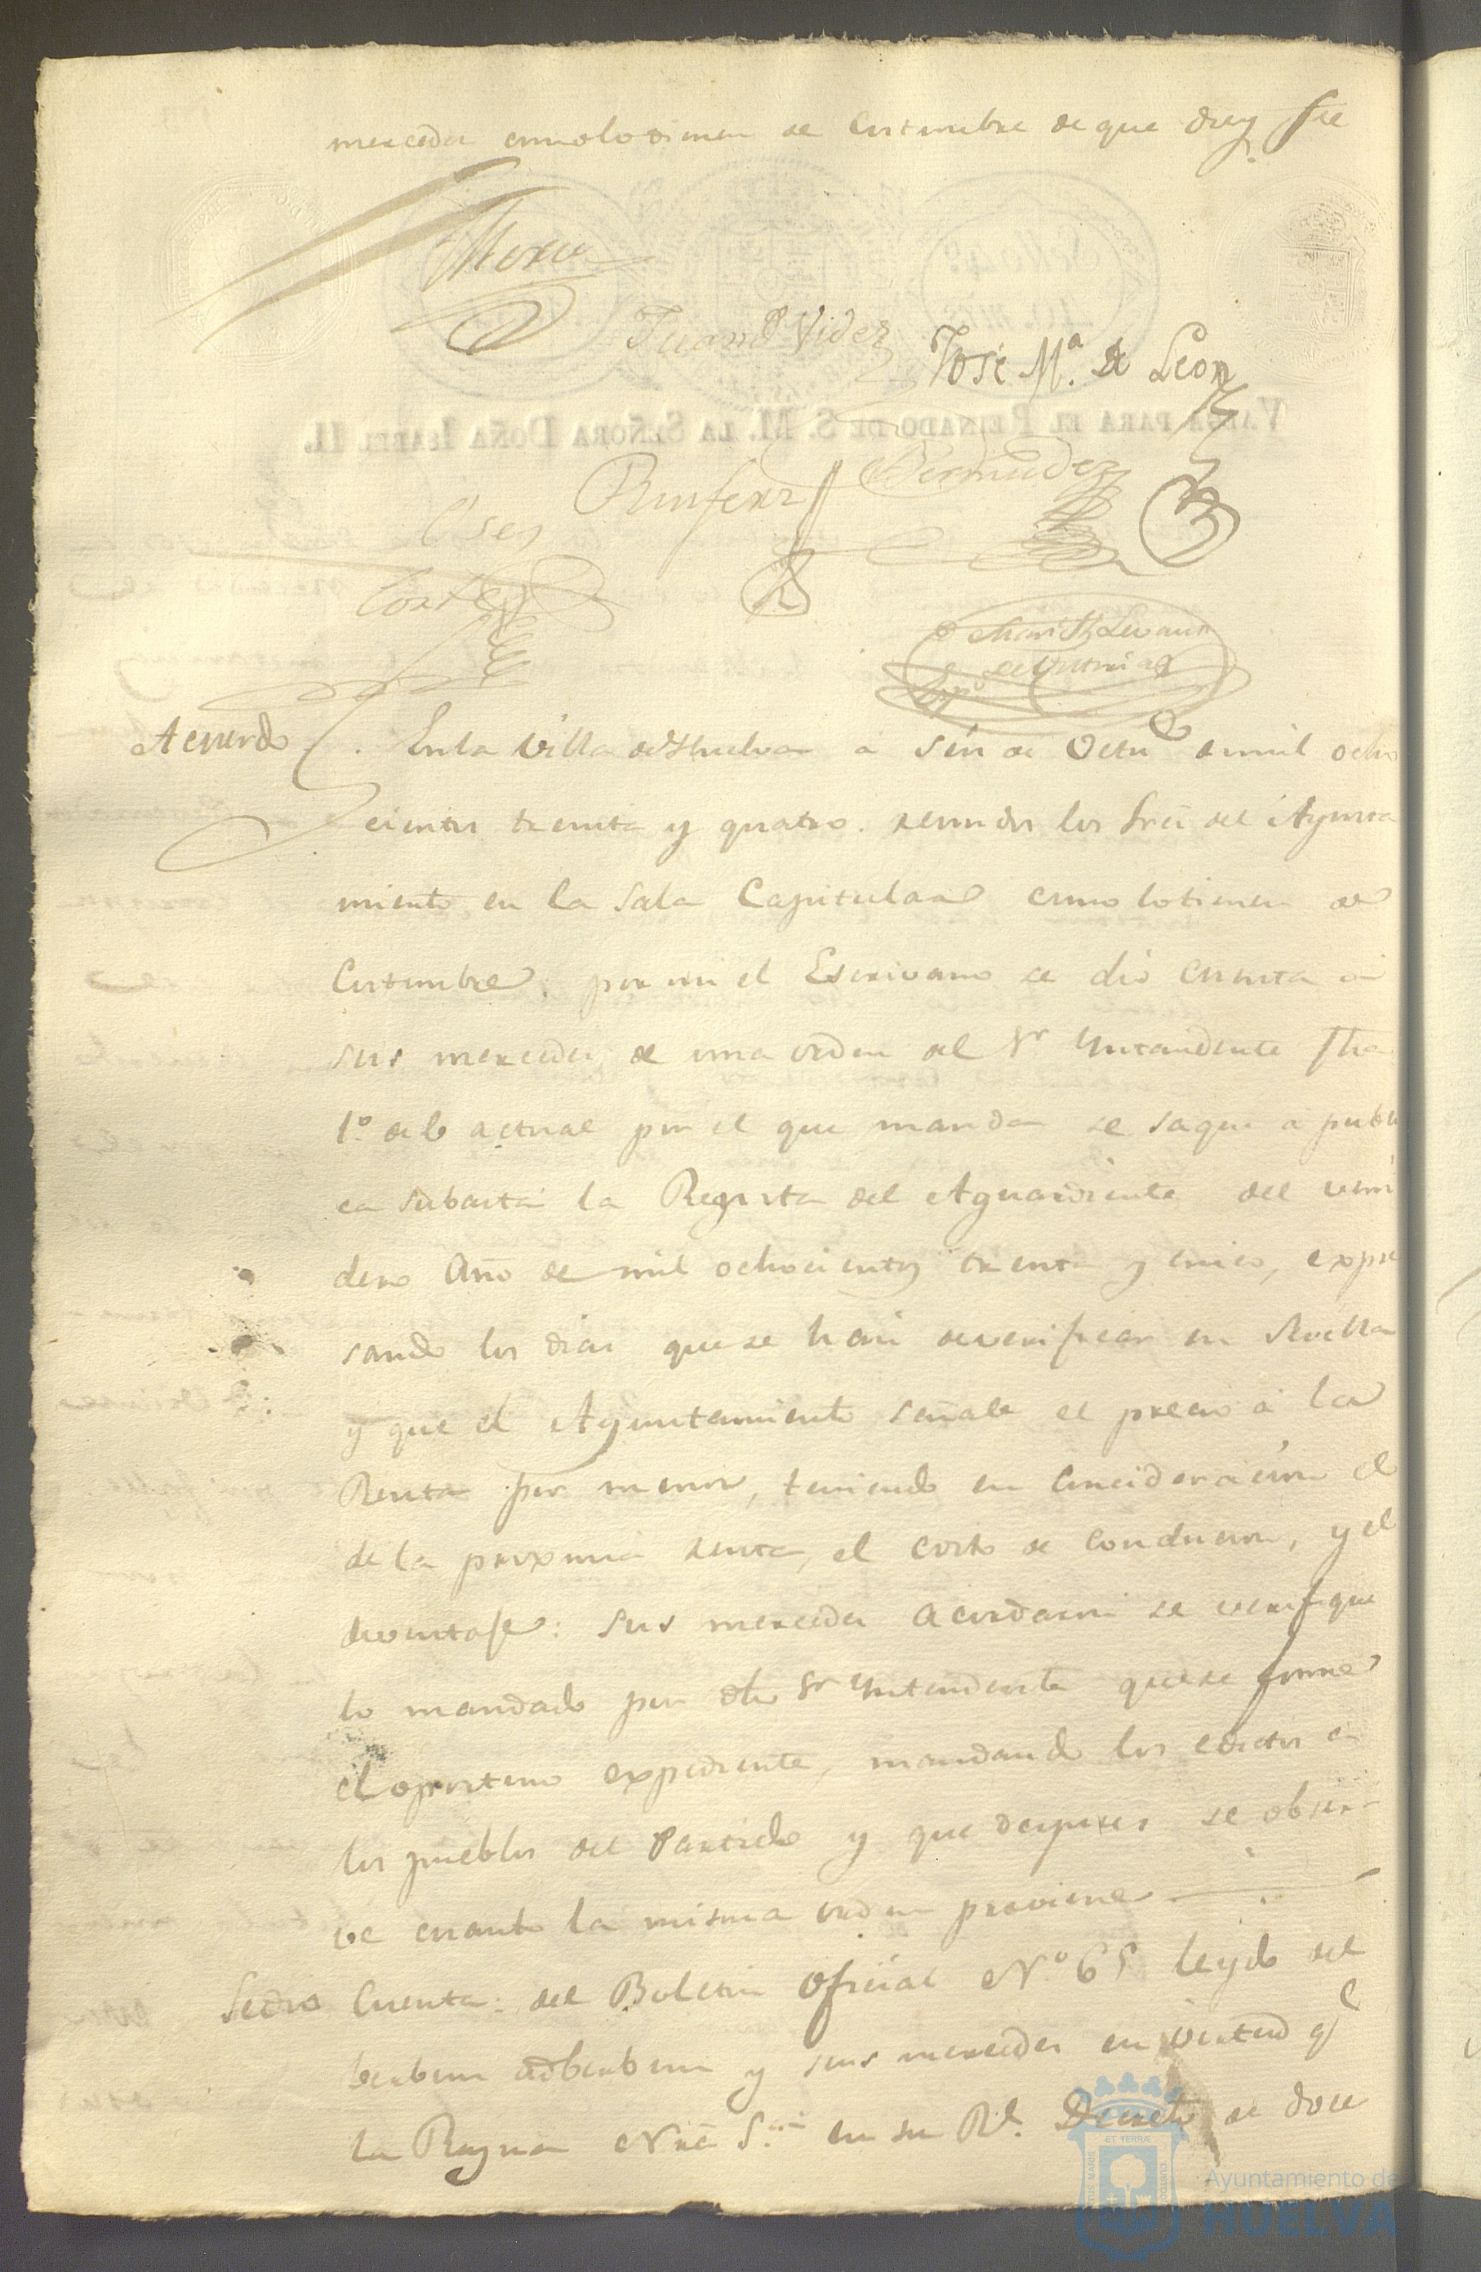 mercedes como lo tienen de Costumbre de que doy fee
Juan Videz
José M.ª de Leon
Valga para el Reinado de S. M. la Señora Doña Isabel II.
Bermudez
Oses
Cortes
Acuerdo. En la Villa de Huelva a seis de Octu.e de mil ocho
cientos treinta y quatro. reunidos los Sres del Ayunta
miento en la Sala Capitular como lo tienen de
Costumbre: por mi el Escrivano se dió cuenta a
sus mercedes de una orden del Sr Yntendente fha
1º del actual por el que manda se saque a publi
ca subasta la Renta del Aguardiente del veni
dero Año de mil ochocientos treinta y cinco, expre
sando los dias que se han de verificar en Sevilla
y que el Ayuntamiento señale el precio a la
Renta por menor, teniendo en Concideracion el
de la proxima renta, el costo de conducion, y el
sus mercedes acordaron se verifique
lo mandado por dho Sr Yntendente que se forme
el oportuno expediente, mandando los edictos a
los pueblos del Partido y que despues se obser
ve cuanto la misma orden previene
Se dio Cuenta: del Boletin Oficial Nº 65 leydo del
berbum adberbum y sus mercedes en virtud q.e
la Reyna Nrã S.ra en su R.l Decreto de doce
ET TERRAE
Ayuntamiento de
HUELVA